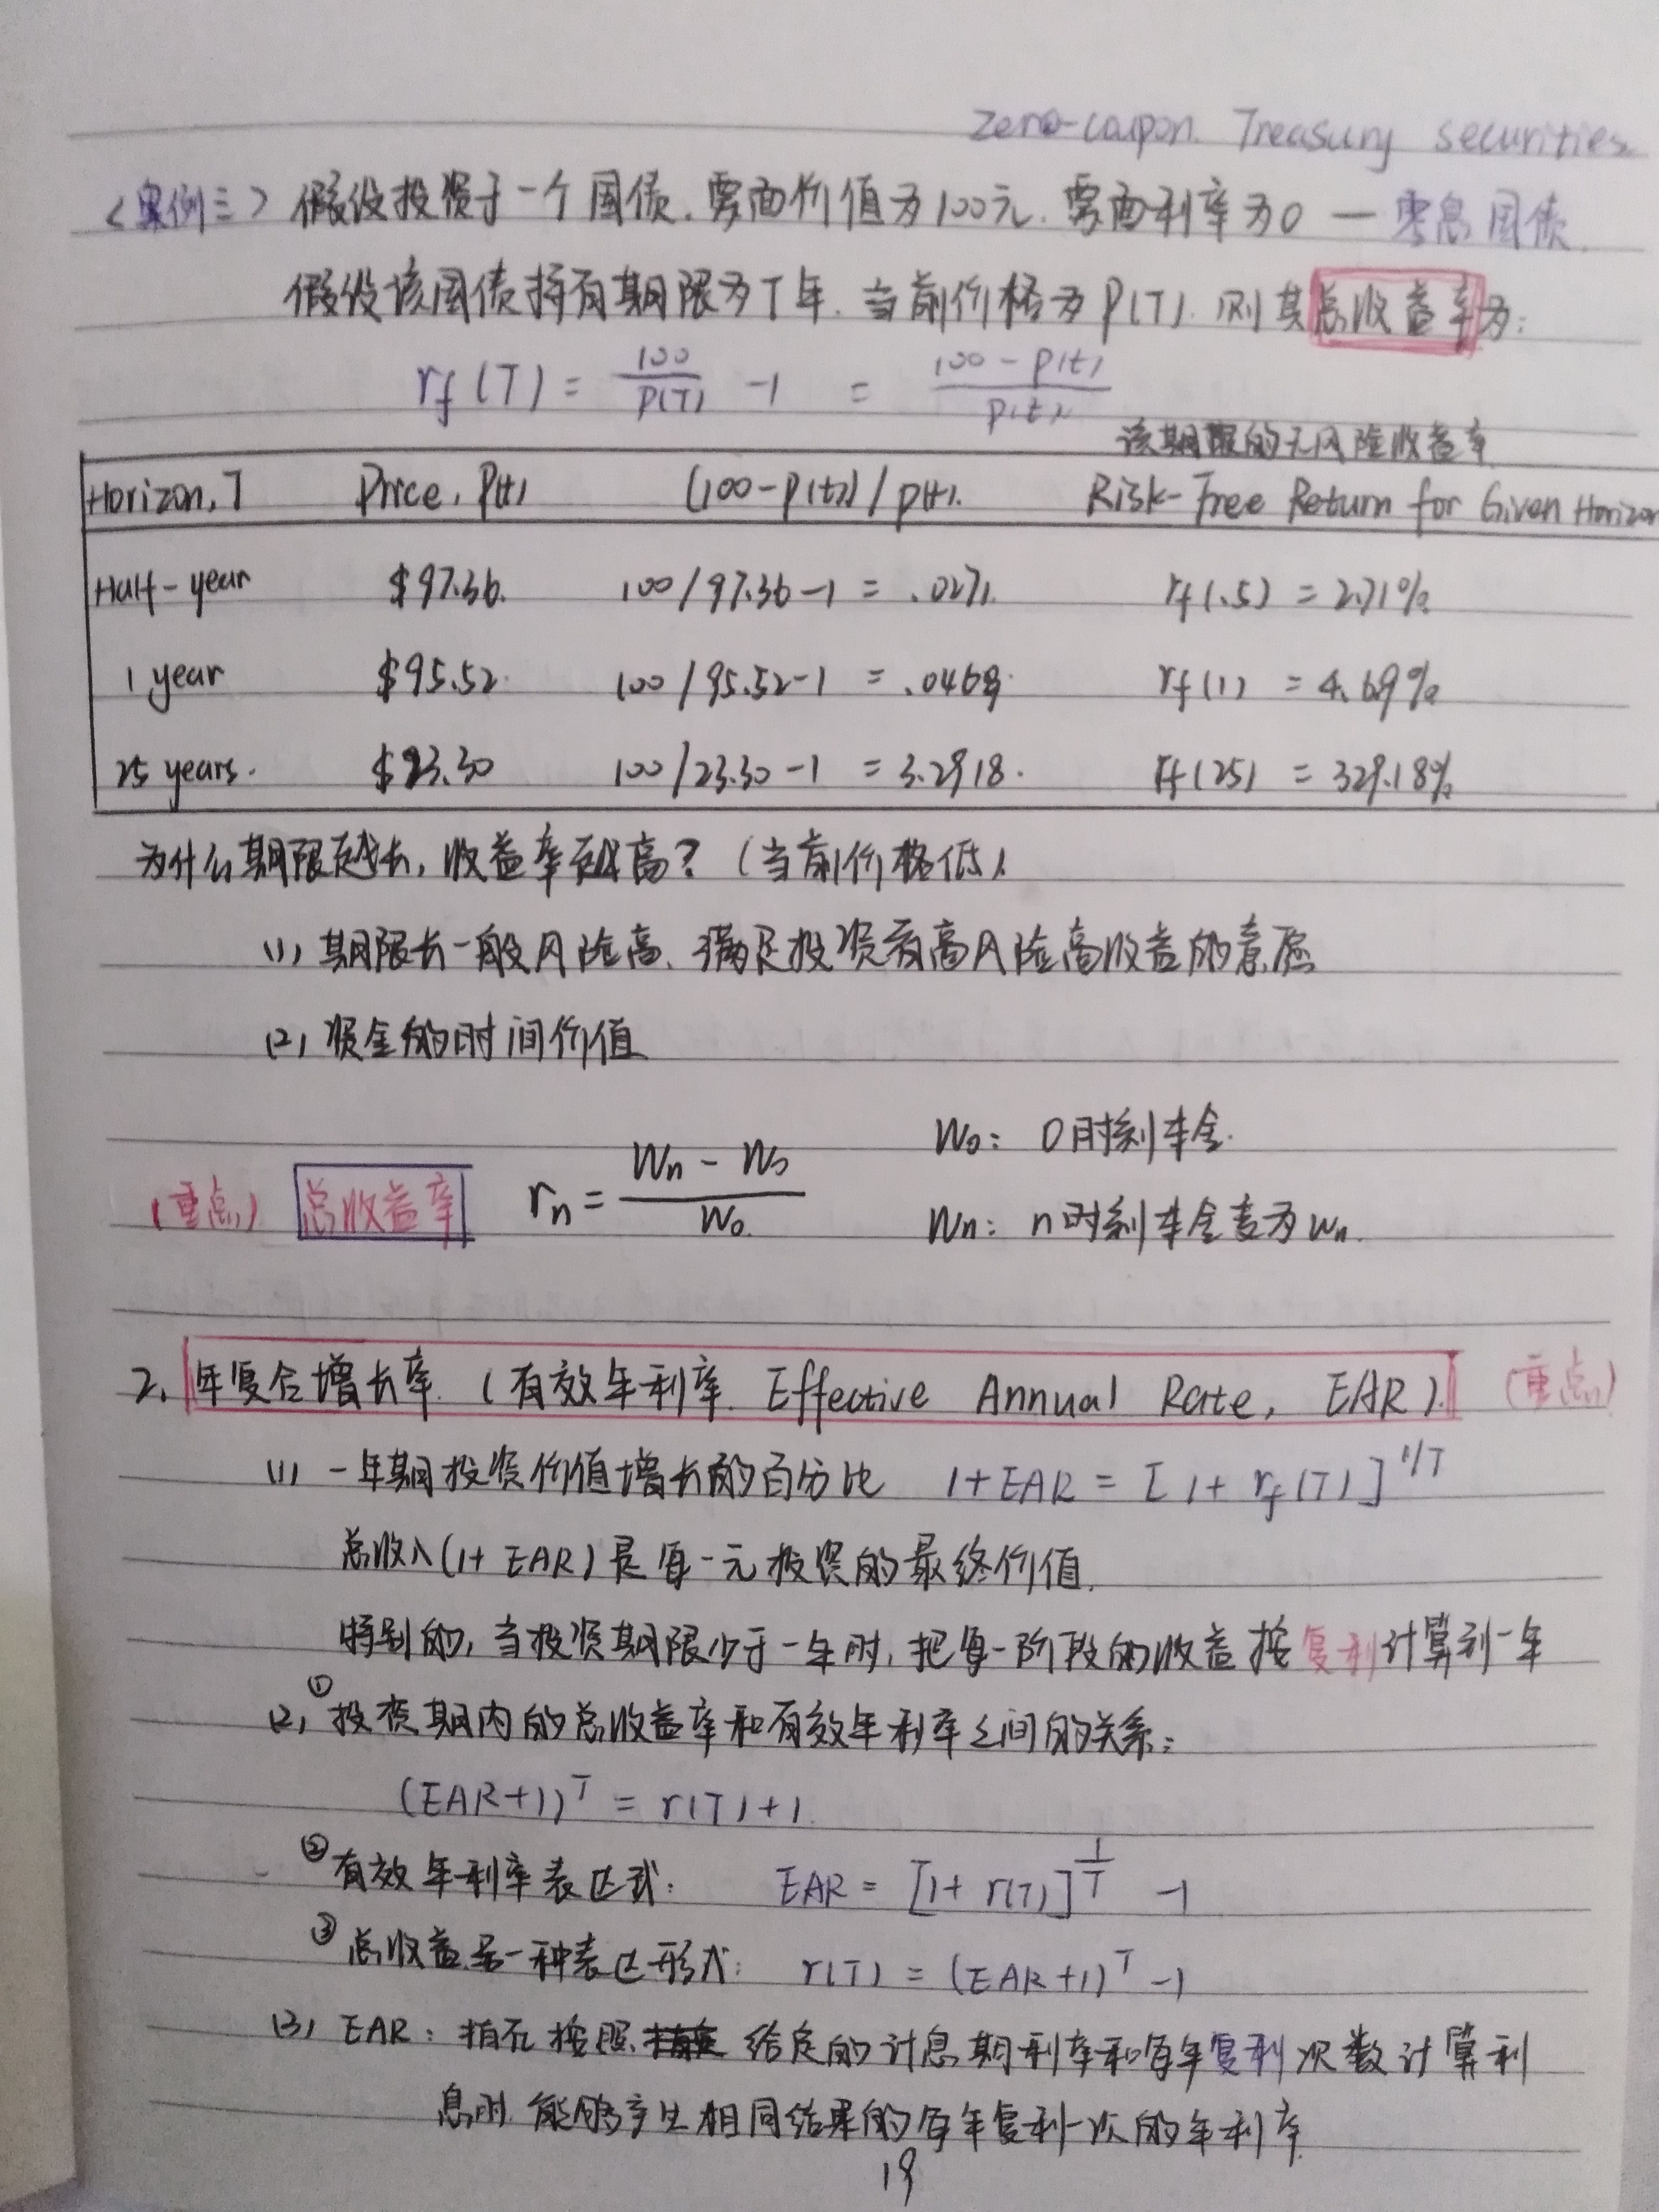 Zero-coupon Treasury securities
<案例三> 假设投资于一个国债. 票面价值为100元. 票面利率为0 — 零息国债.
假设该国债持有期限为T年. 当前价格为P(T). 则其总收益率为:
rf(T) = 100/P(T) - 1 = (100 - P(t))/P(t)
该期限的无风险收益率
Horizon, T Price, P(t) (100-P(t))/P(t). Risk-Free Return for Given Horizon
Half-year $97.36. 100/97.36-1 = .0271. rf(.5) = 2.71%
1 year $95.52. 100/95.52-1 = .0469. rf(1) = 4.69%
25 years. $23.30 100/23.30-1 = 3.2918. rf(25) = 329.18%
为什么期限越长, 收益率越高? (当前价格低)
(1) 期限长一般风险高、满足投资者高风险高收益的意愿
(2) 资金的时间价值
W0: 0时刻本金.
(重点) 总收益率 rn = (Wn - W0)/W0.
Wn: n时刻本金变为Wn.
2. 年复合增长率. (有效年利率. Effective Annual Rate, EAR). (重点)
(1) 一年期投资价值增长的百分比 1+EAR = [1+rf(T)]^1/T
总收入(1+EAR)是每一元投资的最终价值.
特别的, 当投资期限少于一年时, 把每一阶段的收益按复利计算到一年
(2) ①投资期内的总收益率和有效年利率之间的关系:
(EAR+1)^T = r(T)+1.
②有效年利率表达式: EAR = [1+r(T)]^1/T -1
③总收益另一种表达形式: r(T) = (EAR+1)^T -1
(3) EAR: 指在按照 给定的计息期利率和每年复利次数计算利
息时. 能够产生相同结果的每年复利一次的年利率.
19